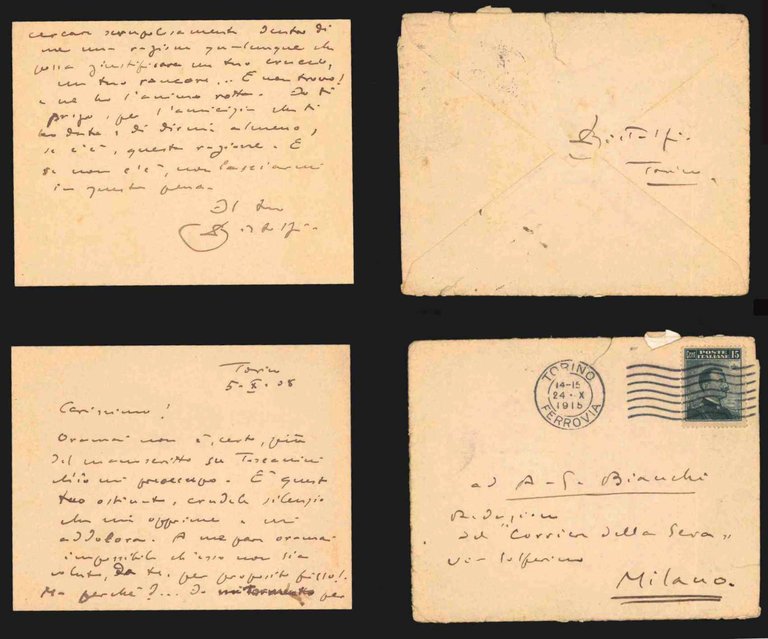 cercare scrupolosamente dentro di
me una ragione qualunque che
possa giustificare un tuo cruccio,
un tuo rancore... E non trovo!
e ne ho l'animo rotto. Io ti
prego, per l'amicizia che ti
ho data, di dirmi almeno,
se c'è, questa ragione. E
se non c'è, non lasciarmi
in questa pena.
Il tuo
Torino
Torino
5. X. 08
Carissimo!
Oramai non è, certo, più
del manoscritto su Toscanini
ch'io mi preoccupo. È questo
tuo ostinato, crudele silenzio
che mi opprime e mi
addolora. A me pare oramai
impossibile ch'esso non sia
voluto, da te, per proposito fisso!
Ma perché?... Io per
POSTE ITALIANE
Cent 15
TORINO
14-15
24·X
1915
FERROVIA
ad A.G. Bianchi
Redazione
del "Corriere della Sera"
via Solferino
Milano.